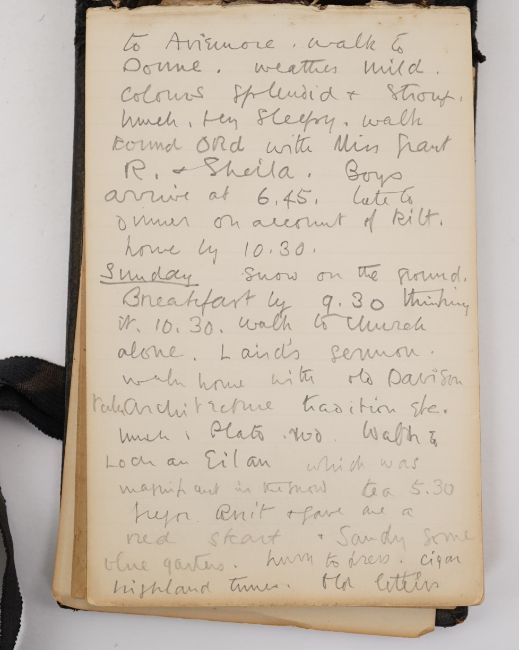 to Aviemore. walk to
Doune. weather mild.
colours splendid & strong.
lunch. very sleepy. walk
round Ord with Miss Grant
R. & Sheila. Boys
arrive at 6.45. late to
dinner on account of kilt.
home by 10.30.
Sunday Snow on the ground.
Breakfast by 9.30 thinking
it. 10.30. walk to church
alone. Laird's sermon.
walk home with old Davison
Talk Architecture tradition etc.
lunch. Plato. Walk to
Loch an Eilan which was
magnificent in the snow tea 5.30
knit & gave me a
red & Sandy some
blue garters. home to dress. cigar
highland tunes. Old letters